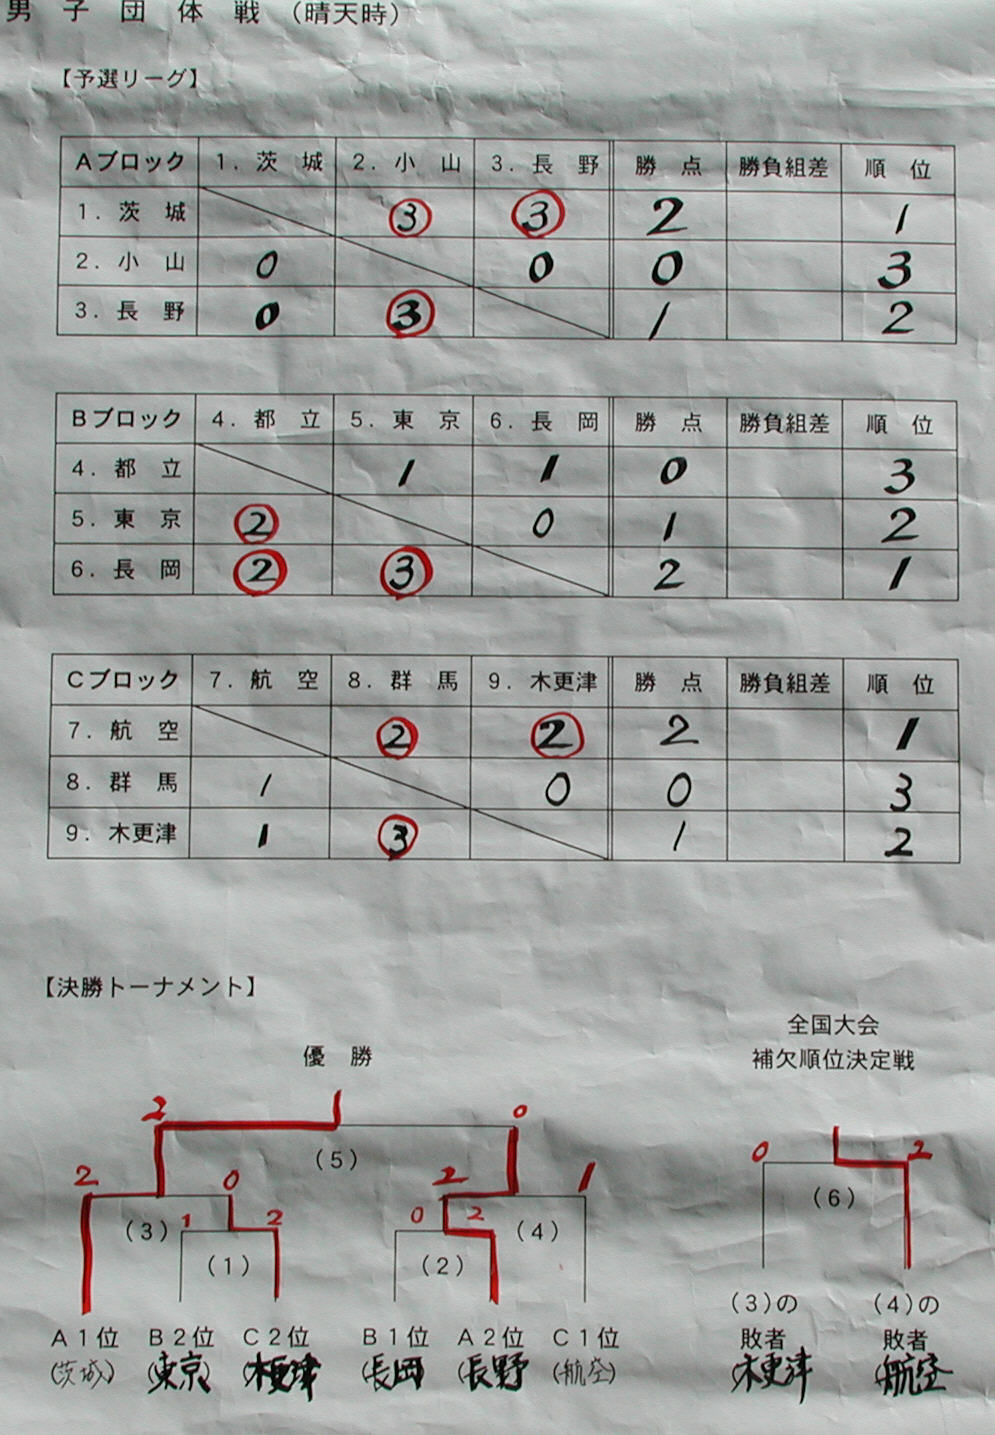 男子団体戦（晴天時）
【予選リーグ】
Aブロック 1．茨城 2．小山 3．長野 勝点 勝負組差 順位
1．茨城 ③ ③ 2 1
2．小山 0 0 0 3
3．長野 0 ③ 1 2
Bブロック 4．都立 5．東京 6．長岡 勝点 勝負組差 順位
4．都立 1 1 0 3
5．東京 ② 0 1 2
6．長岡 ② ③ 2 1
Cブロック 7．航空 8．群馬 9．木更津 勝点 勝負組差 順位
7．航空 ② ② 2 1
8．群馬 1 0 0 3
9．木更津 1 ③ 1 2
【決勝トーナメント】
全国大会
補欠順位決定戦
優勝
2 0
(5)
0 2
(6)
2 0 2 1
(3) 1 2 0 2 (4)
(1) (2)
(3)の (4)の
敗者 敗者
木更津 航空
A1位 B2位 C2位 B1位 A2位 C1位
(茨城) (東京) (木更津) (長岡) (長野) (航空)